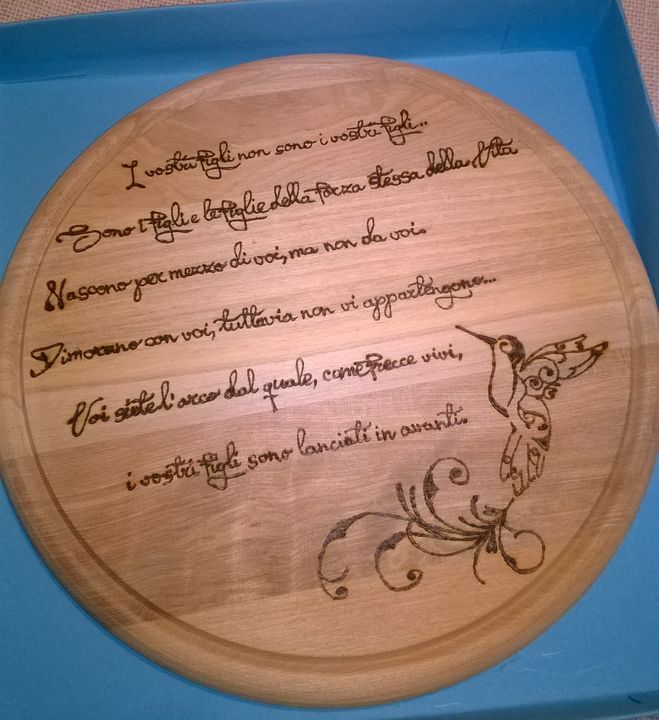 I vostri figli non sono i vostri figli...
Sono i figli e le figlie della forza stessa della Vita
Nascono per mezzo di voi, ma non da voi.
Dimorano con voi, tuttavia non vi appartengono...
Voi siete l'arco dal quale, come frecce vivi,
i vostri figli sono lanciati in avanti.